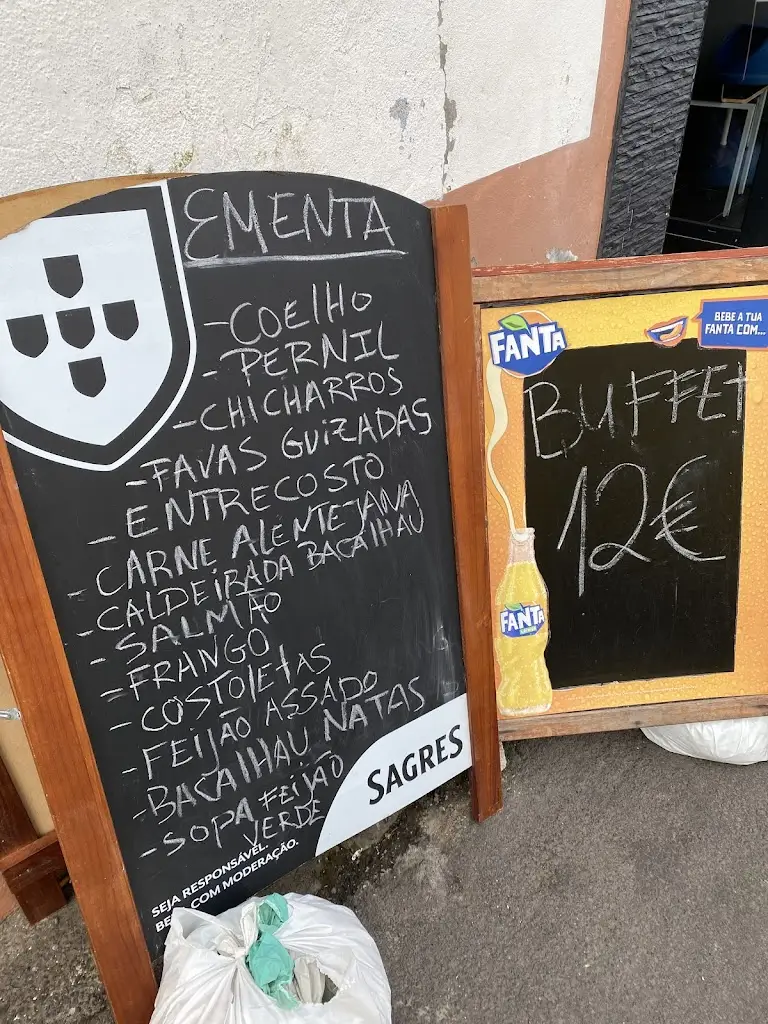 EMENTA
- COELHO
- PERNIL
- CHICHARROS
- FAVAS GUIZADAS
- ENTRECOSTO
- CARNE ALENTEJANA
- CALDEIRADA BACALHAU
- SALMÃO
- FRANGO
- COSTOLETAS
- FEIJÃO ASSADO
- BACALHAU NATAS
- SOPA FEIJÃO
VERDE
SAGRES
SEJA RESPONSÁVEL.
COM MODERAÇÃO.
FANTA
BEBE A TUA
FANTA COM...
BUFFET
12€
FANTA